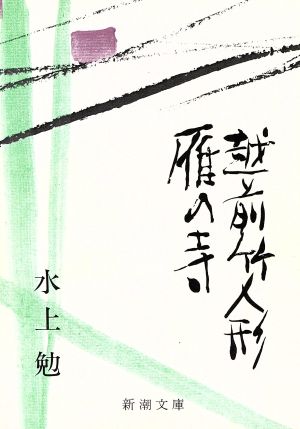 越前竹人形
雁の寺
水上勉
新潮文庫